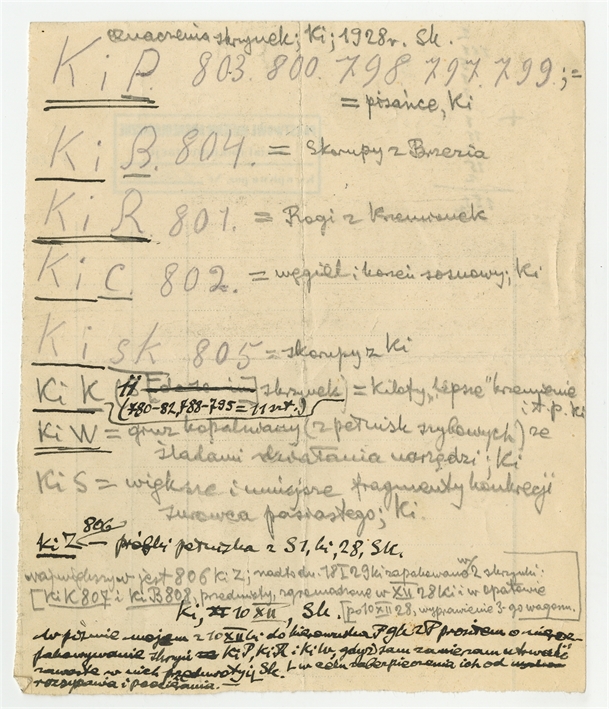 oznaczenia skrzynek; Ki; 1928 r. Sk.
Ki P. 803. 800. 798. 797. 799.; =
= pisańce, Ki
Ki B. 804. = Skorupy z Brzezia
Ki R. 801. = Rogi z Krzemionek
Ki C. 802. = węgiel i korzeń sosnowy; Ki
Ki sk 805 = skorupy z Ki
Ki K (11 skrzynek) = Kiloty, "lepsze" krzemienie
(780-82, 788-795 = 11 szt.) i t. p. Ki
Ki W = gruz kopalniany (z pełnisk szybowych) ze
śladami działania narzędzi; Ki
Ki S = większe i mniejsze fragmenty konkrecji
surowca pasiastego; Ki.
806
Ki Z próbki pełniska z S1, ki, 28, Sk.
najwyższy w jest 806 Ki Z; nadto dn. 18 I 29 ki zapakowano w 2 skrzynki:
[Ki K 807 i Ki B 808, przedmioty, zgromadzone w XII 28 Ki i w Opatowie
Ki, 10 XII, Sk. [po 10 XII 28, wyprawienie 3-go wagonu.
w piśmie mojem z 10 XII ki do kierownika PgkzP prosiłem o nieprze-
pakowywanie skrzyń Ki P, Ki R i Ki W, gdyż sam zamierzam utrwalić
zawarte w nich przedmioty; Sk. w celu zabezpieczenia ich od
rozsypania i